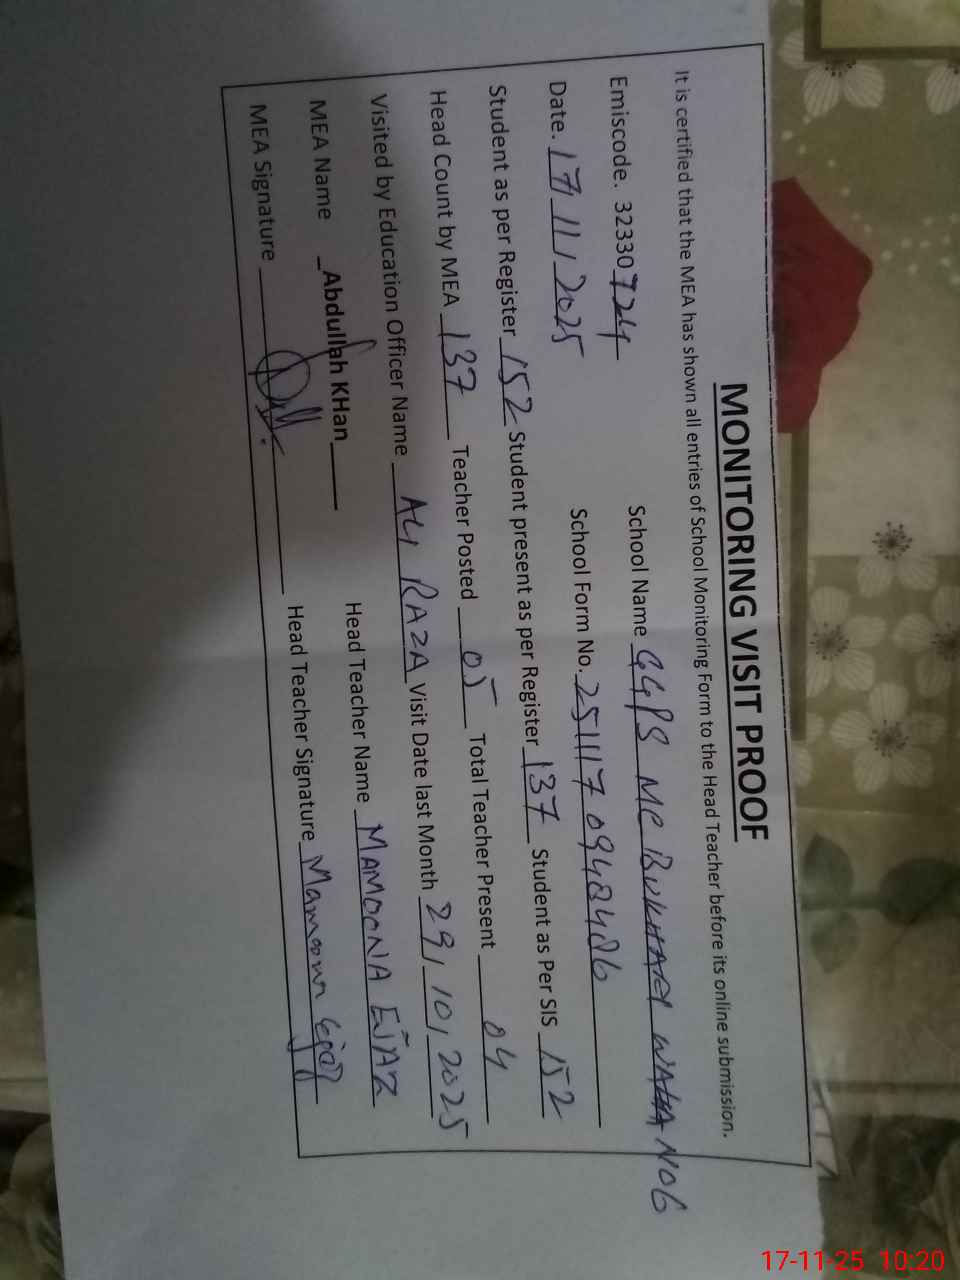 MONITORING VISIT PROOF
It is certified that the MEA has shown all entries of School Monitoring Form to the Head Teacher before its online submission.
Emiscode. 32330724 School Name GGPS MC BUKHARI WALA NO6
Date. 17/11/2025 School Form No. 251117094846
Student as per Register 152 Student present as per Register 137 Student as Per SIS 152
Head Count by MEA 137 Teacher Posted 05 Total Teacher Present 04
Visited by Education Officer Name ALI RAZA Visit Date last Month 29/10/2025
MEA Name _Abdullah KHan Head Teacher Name MAMOONA EJAZ
MEA Signature Head Teacher Signature Mamoona Ejaz
17-11-25 10:20